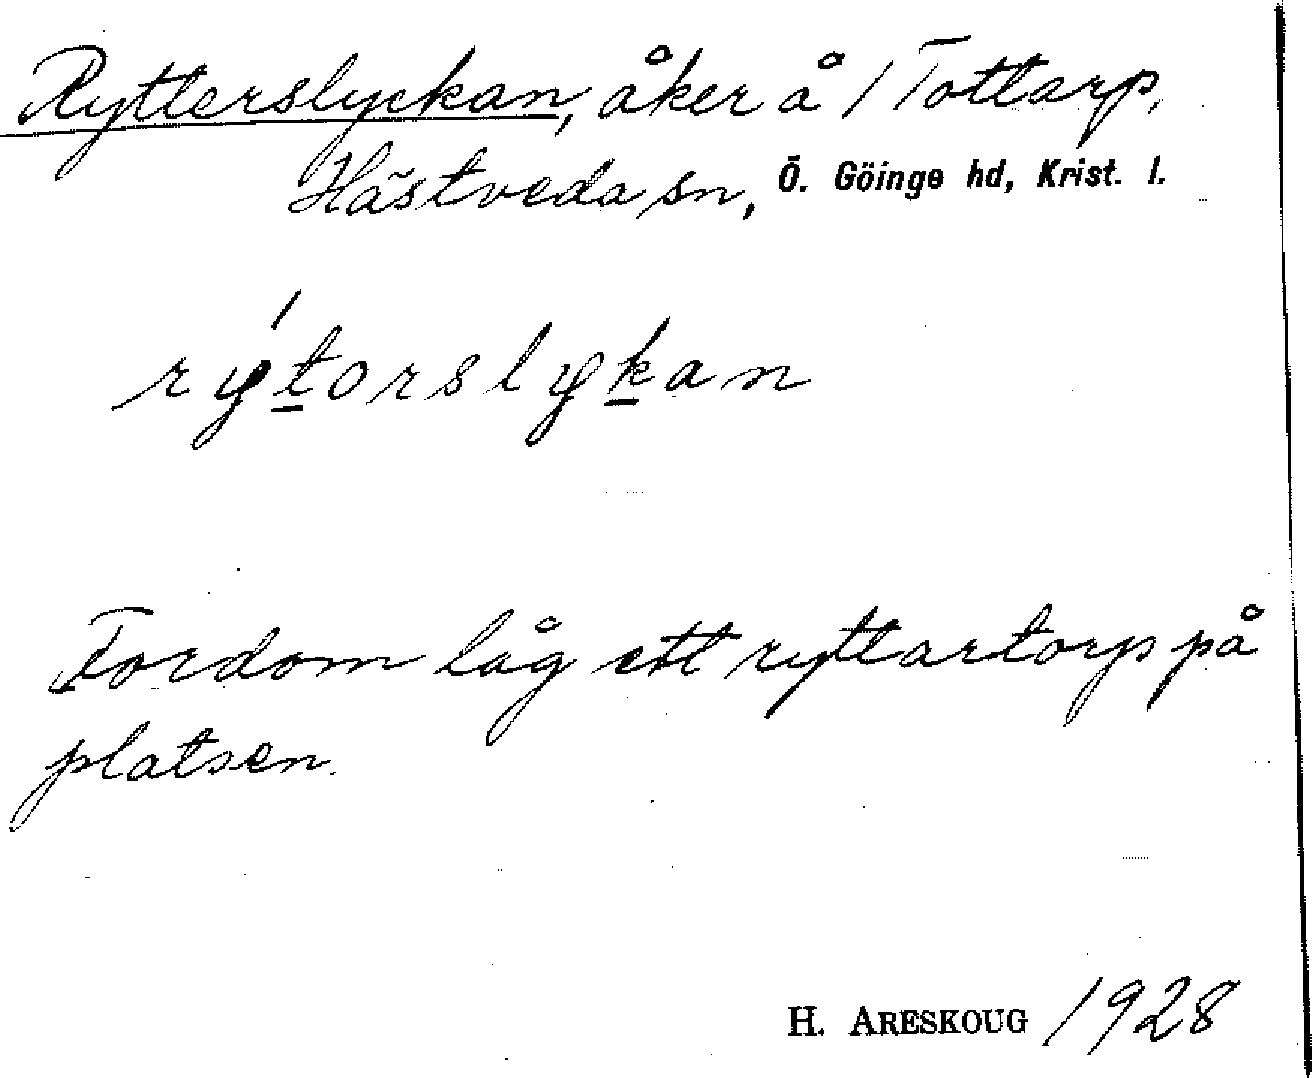 Rytterslyckan, åker å 1 Tottarp,
Hästveda sn, Ö. Göinge hd, Krist. l.
rýtorslykan
Fordom låg ett ryttartorp på
platsen.
H. ARESKOUG 1928